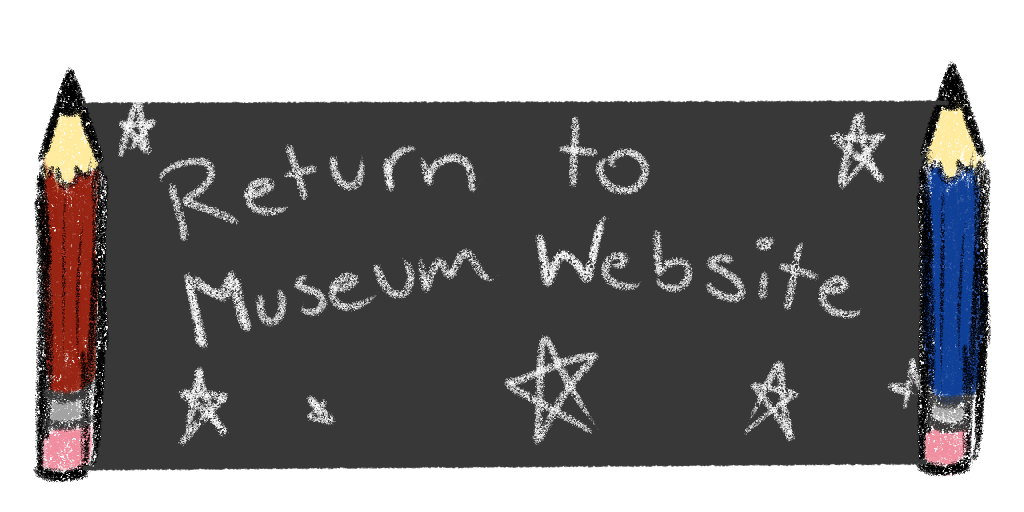 Return to
Museum Website